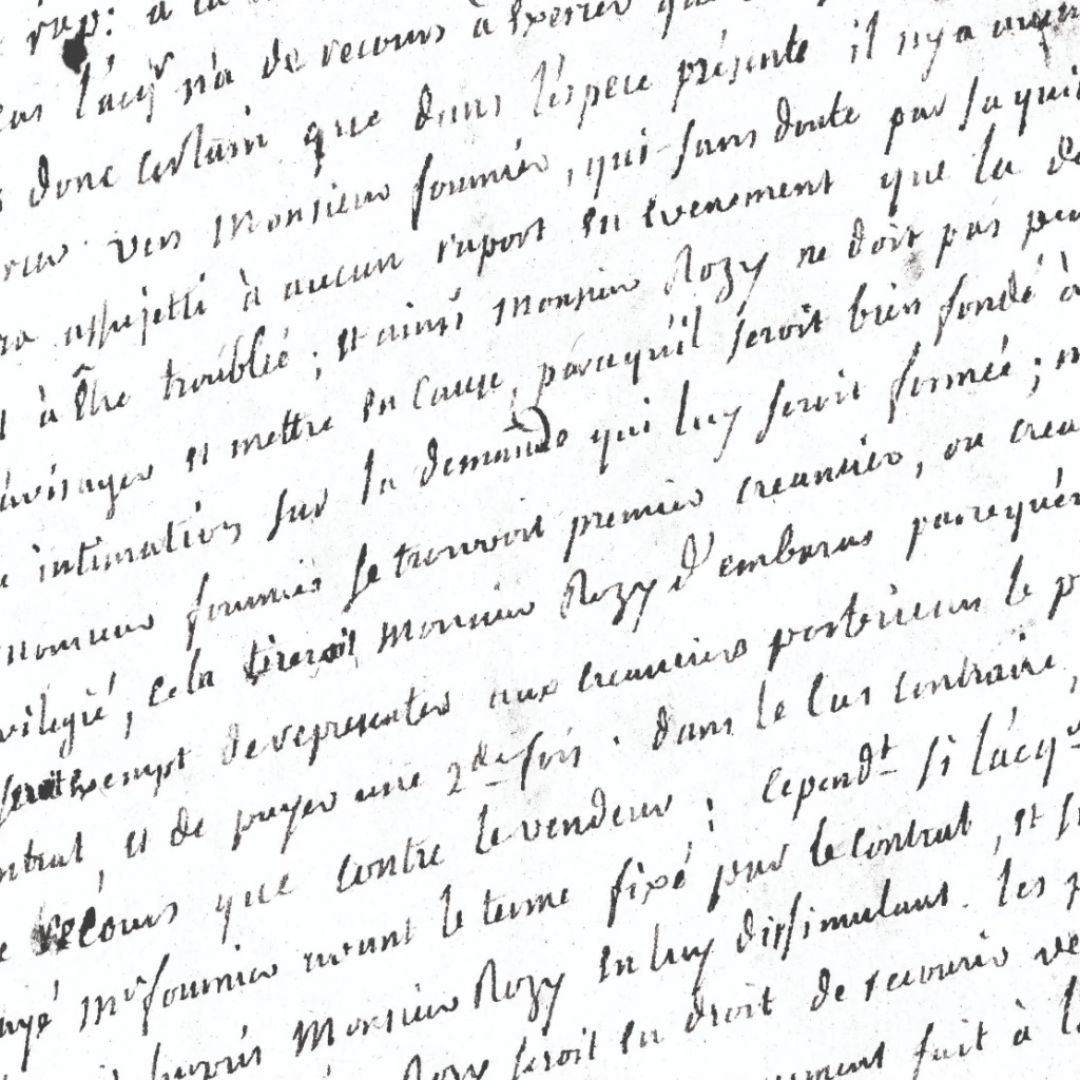 rap: à la
cas l'acqr n'a de recours à exercer que
donc certain que dans l'espece présente il n'y a aucun
vers Monsieur fournier, qui sans doute par sa quit
assujetti à aucun raport en evenement que la de
à être troublé; et ainsi Monsieur Rozy ne doit pas peu
envisager et mettre en cause, parcequ'il seroit bien fondé à
intimation sur la demande qui luy seroit formée; m
Monsieur fournier se trouvoit premier creancier, ou crea
vilegié, cela tireroit Monsieur Rozy d'embaras parcequér
seroit exempt de representer aux creanciers porterieurs le p
ntrat, et de payer une 2de fois. dans le cas contraire,
recours que contre le vendeur; cependt si l'acqr
ayé Mr fournier avant le terme fixé par le contrat, et s
Monsieur Rozy en luy dissimulant les p
Rozy seroit en droit de recourir ve
ment fait à l